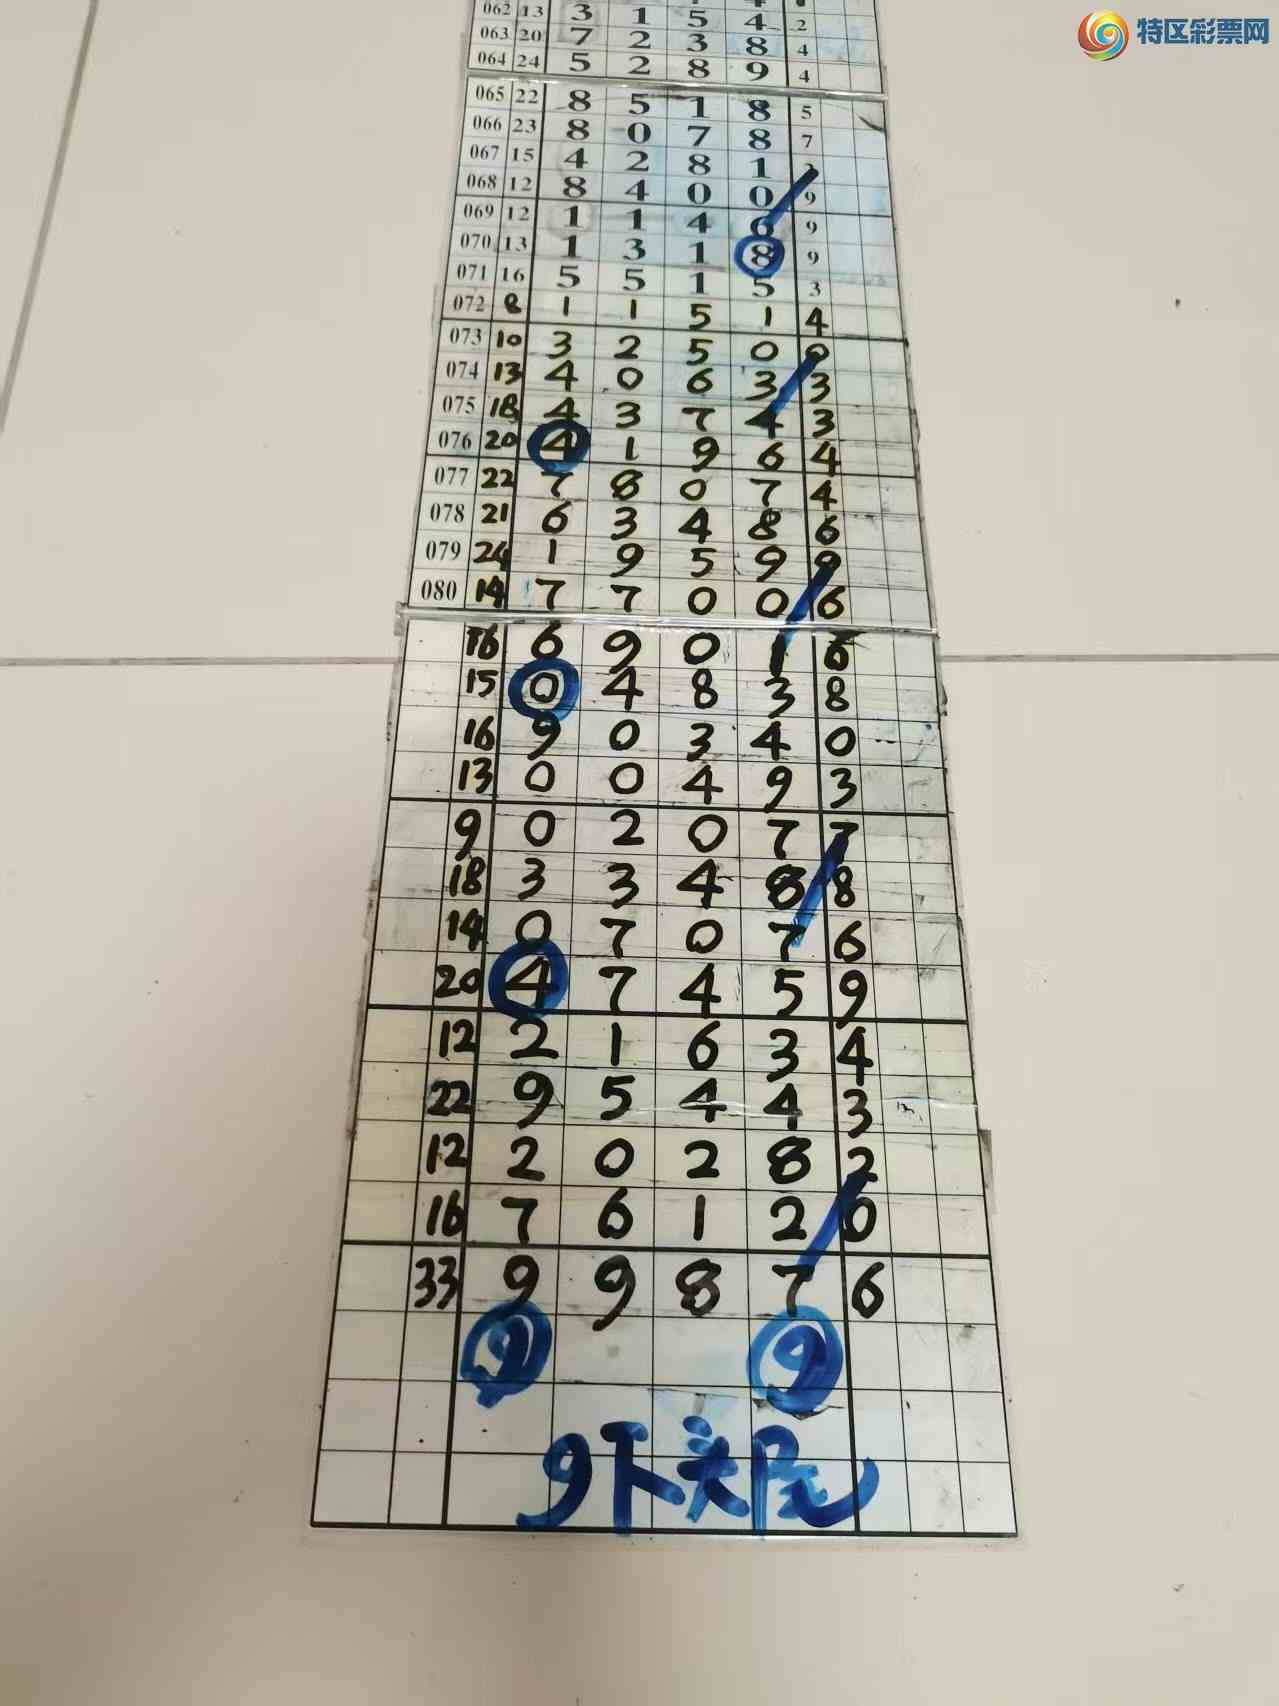 特区彩票网
062 13 3 1 5 4 2
063 20 7 2 3 8 4
064 24 5 2 8 9 4
065 22 8 5 1 8 5
066 23 8 0 7 8 7
067 15 4 2 8 1
068 12 8 4 0 0 9
069 12 1 1 4 6 9
070 13 1 3 1 8 9
071 16 5 5 1 5 3
072 8 1 1 5 1 4
073 10 3 2 5 0 0
074 13 4 0 6 3 3
075 18 4 3 7 4 3
076 20 4 1 9 6 4
077 22 7 8 0 7 4
078 21 6 3 4 8 6
079 24 1 9 5 9 9
080 14 7 7 0 0 6
16 6 9 0 1 6
15 0 4 8 3 8
16 9 0 3 4 0
13 0 0 4 9 3
9 0 2 0 7 7
18 3 3 4 8 8
14 0 7 0 7 6
20 4 7 4 5 9
12 2 1 6 3 4
22 9 5 4 4 3
12 2 0 2 8 2
16 7 6 1 2 0
33 9 9 8 7 6
9 9
9下头尾